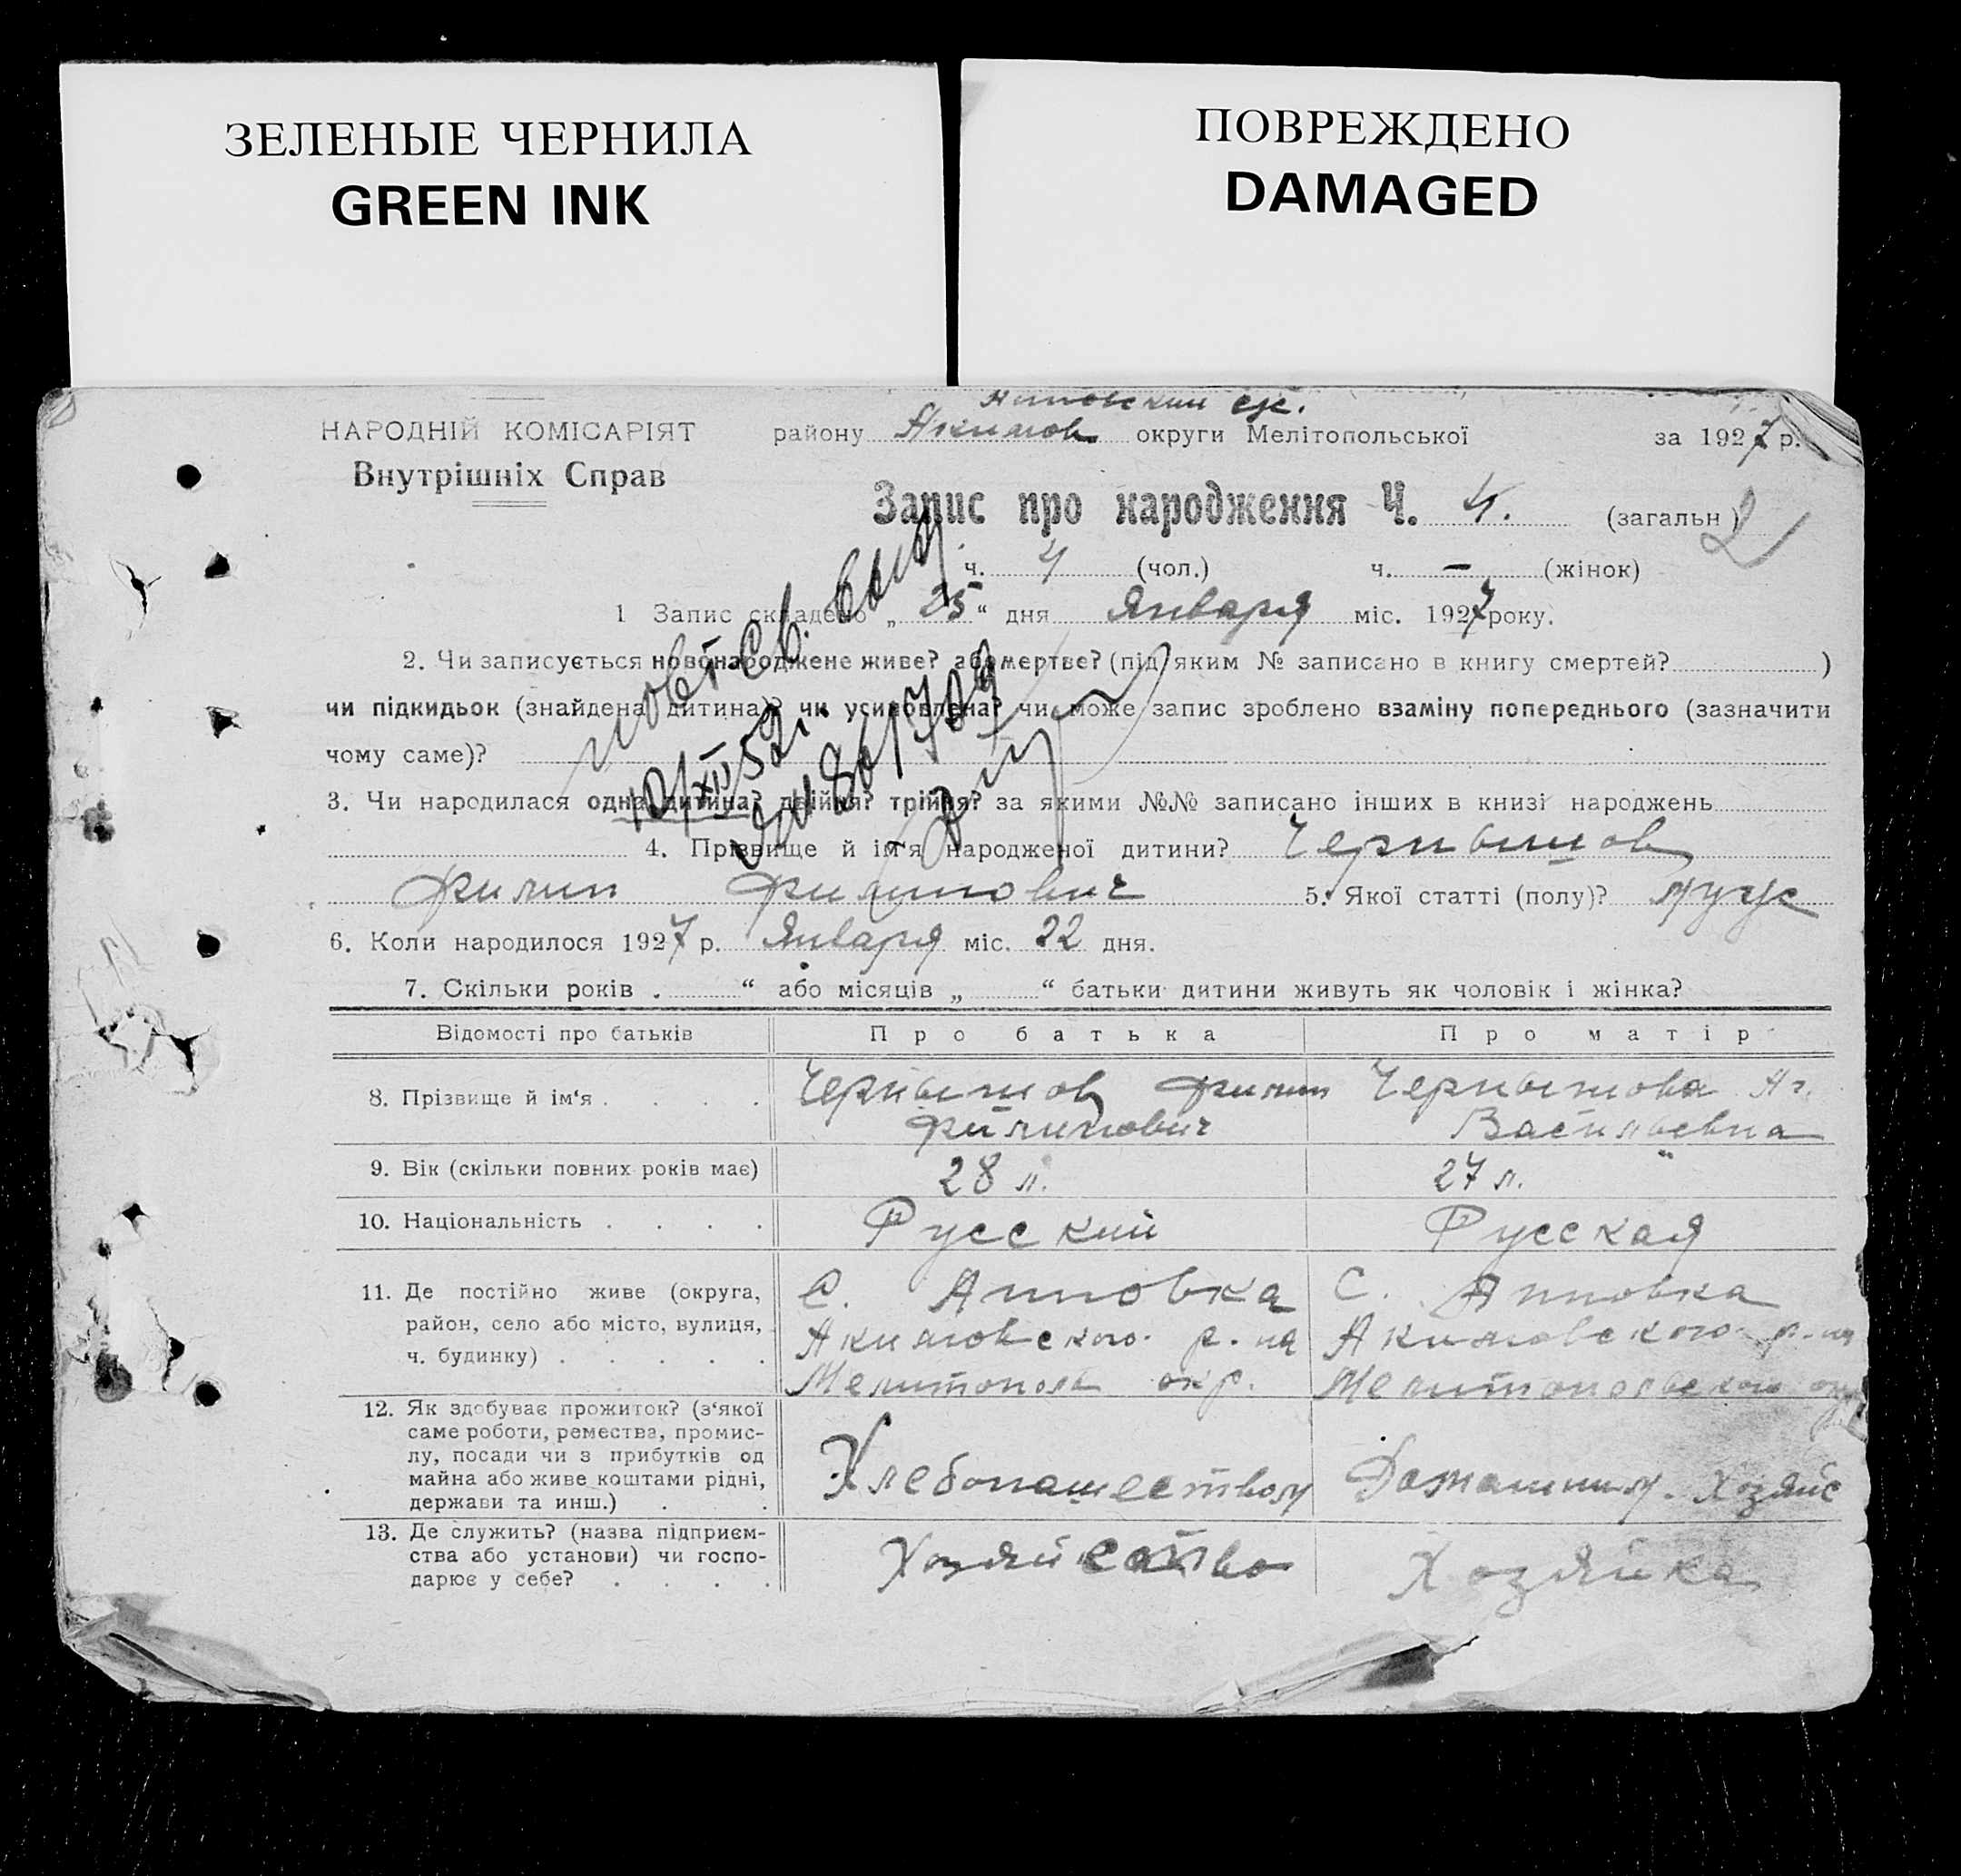 ЗЕЛЕНЫЕ ЧЕРНИЛА
GREEN INK
ПОВРЕЖДЕНО
DAMAGED
НАРОДНІЙ КОМІСАРІЯТ
Внутрішніх Справ
района Акимов. округи Мелітопольської за 1927 р.
Запис про народження Ч. 4. (загальн)
2
ч. 4 (чол.) ч. — (жінок)
1 Запис складено „ 25 “ дня Января міс. 1927 року.
2. Чи записується новонароджене живе? або мертве? (під яким № записано в книгу смертей? )
чи підкидьок (знайдена дитина)? чи усиновлена? чи може запис зроблено взаміну попереднього (зазначити
чому саме)?
3. Чи народилася одна дитина? двійня? трійня? за якими №№ записано інших в книзі народжень
4. Прізвище й ім'я народженої дитини? Чернышов
Филип Филипович 5. Якої статті (полу)?
6. Коли народилося 1927 р. Января міс. 22 дня.
7. Скільки років . “ або місяців „ “ батьки дитини живуть як чоловік і жінка?
Відомості про батьків Про батька Про матір
8. Прізвище й ім‘я . . . . Чернышов Филип Филипович Чернышова Васильевна
9. Вік (скільки повних років має) 28 л. 27 л.
10. Національність . . . . Русский Русская
11. Де постійно живе (округа, С. Анновка С. Анновка
район, село або місто, вулиця, Акимовского р. на Акимовского р. на
ч. будинку) . . . . . Мелитополь окр. Мелитопольского окр
12. Як здобуває прожиток? (з‘якої
саме роботи, ремества, промис-
лу, посади чи з прибутків од
майна або живе коштами рідні,
держави та инш.) . . Хлебопашеством Домашним. Хозяйс
13. Де служить? (назва підприєм-
ства або установи) чи госпо-
дарює у себе? . . . . Хозяйство Хозяйка